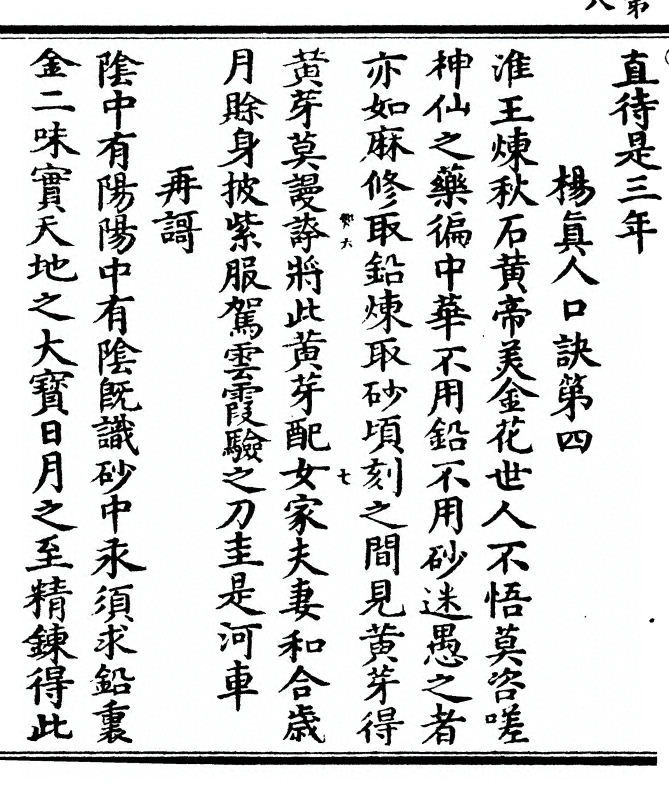 直待是三年
楊眞人口訣第四
淮王煉秋石黃帝美金花世人不悟莫咨嗟
神仙之藥徧中華不用鉛不用砂迷愚之者
亦如麻修取鉛煉取砂頃刻之間見黃芽得
黃芽莫謾誇將此黃芽配女家夫妻和合歲
月賒身披紫服駕雲霞驗之刀圭是河車
再謌
陰中有陽陽中有陰旣識砂中汞須求鉛裏
金二味實天地之大寶日月之至精鍊得此